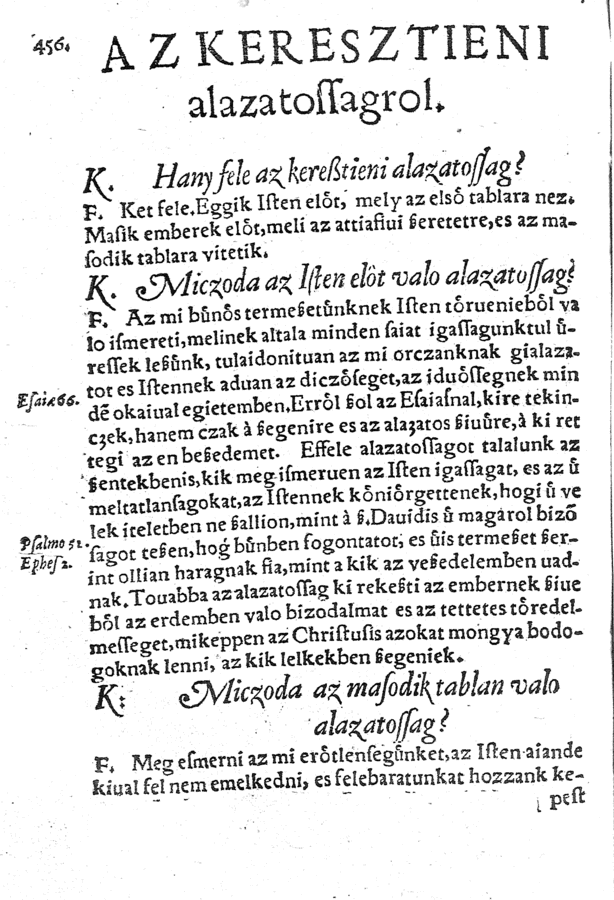 456.
AZ KERESZTIENI
alazatoſſagrol.
K. Hany fele az kereßtieni alazatoſſag?
F. Ket fele. Eggik Iſten elo̊t, mely az elso̊ tablara nez.
Maſik emberek elo̊t, meli az attiafiui ßeretetre, es az ma-
ſodik tablara vitetik.
K. Miczoda az Iſten elo̊t valo alazatoſſag?
F. Az mi bůno̊s termeßetůnknek Iſten to̊rueniebo̊l va
lo iſmereti, melinek altala minden ſaiat igaſſagunktul ů-
reſſek leßůnk, tulaidonituan az mi orczanknak gialaza-
tot es Iſtennek aduan az diczo̊ſeget, az iduo̊ſſegnek min
Eſaiæ 66. dẽ okaiual egietemben. Erro̊l ßol az Eſaiaſnal, kire tekin-
czek, hanem czak à ßegenire es az alazatos ßiuůre, à ki ret
tegi az en beßedemet. Effele alazatoſſagot talalunk az
ßentekbenis, kik meg iſmeruen az Iſten igaſſagat, es az ů
meltatlanſagokat, az Iſtennek ko̊nio̊rgettenek, hogi ů ve
lek iteletben ne ßallion, mint à ß. Dauidis ů magarol bizõ
Pſalmo 52. ſagot teßen, hog bůnben fogontator, es ůis termeßet ßer-
Epheſ 2. int ollian haragnak fia, mint a kik az veßedelemben uad-
nak. Touabba az alazatoſſag ki rekeßti az embernek ßiue
bo̊l az erdemben valo bizodalmat es az tettetes to̊redel-
meſſeget, mikeppen az Chriſtuſis azokat mongya bodo-
goknak lenni, az kik lelkekben ßegeniek.
K: Miczoda az maſodik tablan valo
alazatoſſag?
F. Meg eſmerni az mi ero̊tlenſegůnket, az Iſten aiande
kiual fel nem emelkedni, es felebaratunkat hozzank ke-
peſt